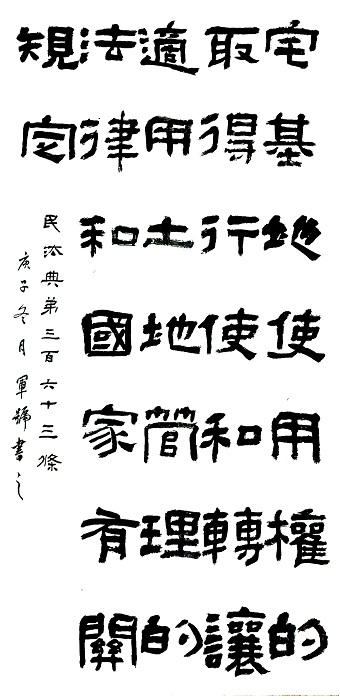 宅基地使用權的
取得行使和轉讓
適用土地管理的
法律和國家有關
規定
民法典第三百六十三條
庚子冬月軍號書之